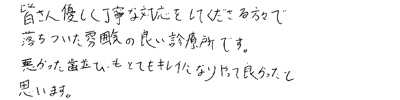 皆さん優しく丁寧な対応をしてくださる方々で
落ちついた雰囲気の良い診療所です。
悪かった歯並びもとてもキレイになりやって良かったと
思います。